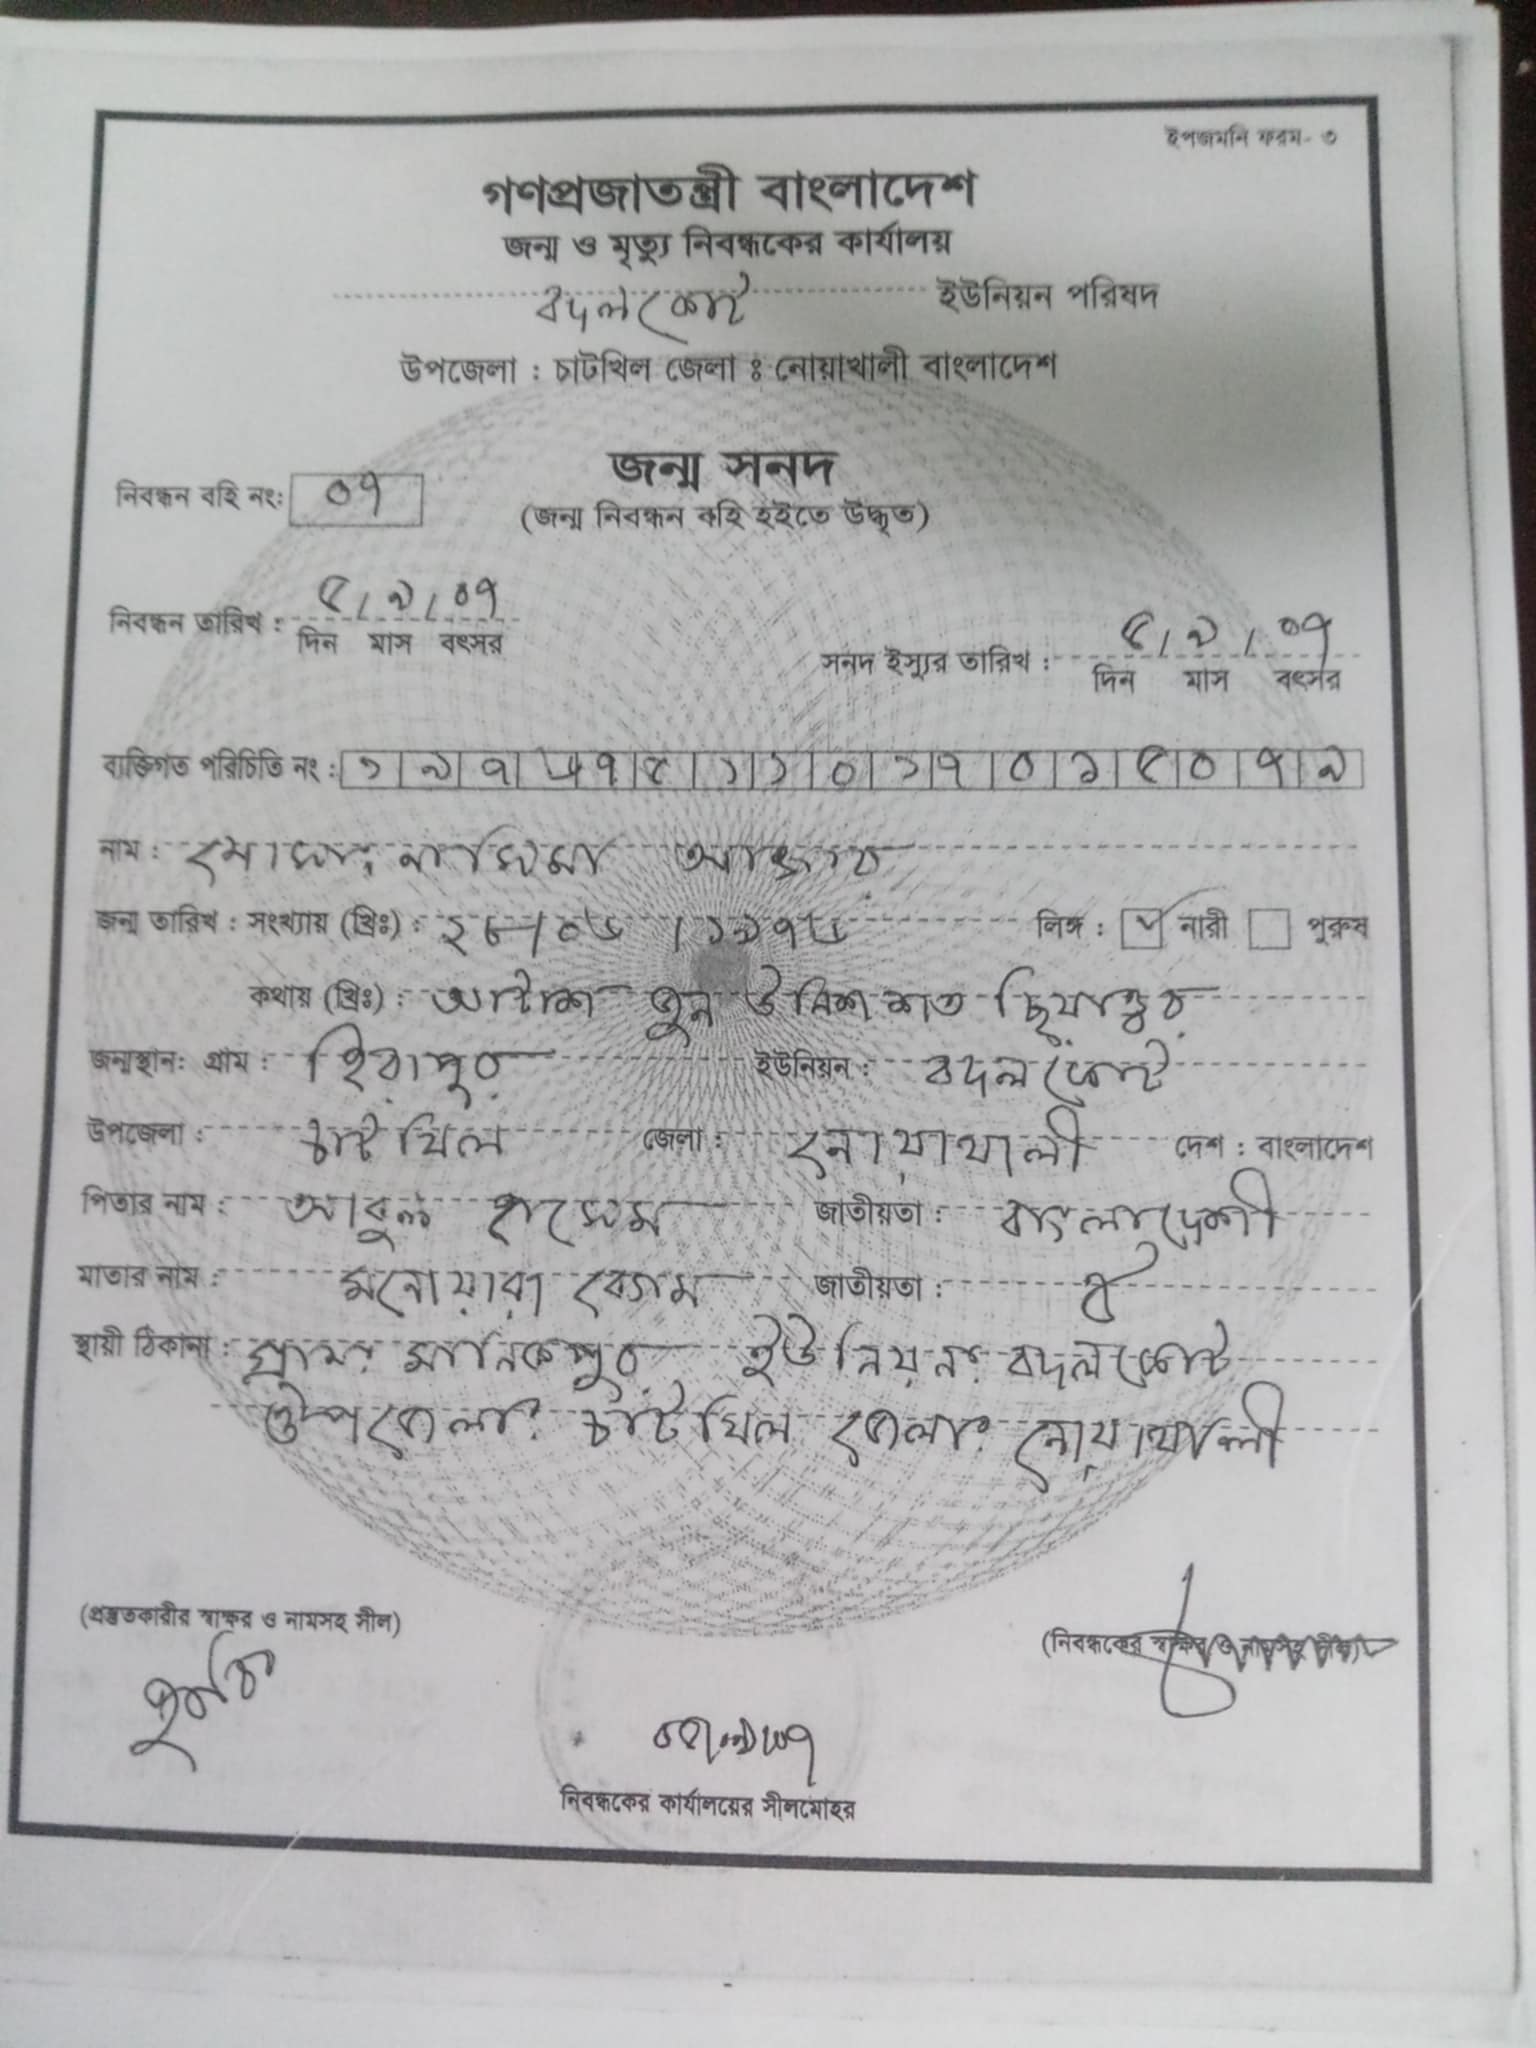 ইপজমনি ফরম- ৩
গণপ্রজাতন্ত্রী বাংলাদেশ
জন্ম ও মৃত্যু নিবন্ধকের কার্যালয়
বদলকোট ইউনিয়ন পরিষদ
উপজেলা : চাটখিল জেলা ঃ নোয়াখালী বাংলাদেশ
জন্ম সনদ
নিবন্ধন বহি নং: ০৭
(জন্ম নিবন্ধন বহি হইতে উদ্ধৃত)
নিবন্ধন তারিখ : ৫/৯/০৭
দিন মাস বৎসর
সনদ ইস্যুর তারিখ : ৫/৯/০৭
দিন মাস বৎসর
ব্যক্তিগত পরিচিতি নং : ১ ৯ ৭ ৬ ৭ ৫ ১ ১ ০ ১ ৭ ০ ১ ৫ ০ ৭ ৯
নাম : মোসাঃ নাসিমা আক্তার
জন্ম তারিখ : সংখ্যায় (খ্রিঃ) : ২৮/০৬/১৯৭৬ লিঙ্গ : নারী পুরুষ
কথায় (খ্রিঃ) : আটাশ জুন উনিশ শত ছিয়াত্তর
জন্মস্থান: গ্রাম : হিরাপুর ইউনিয়ন : বদলকোট
উপজেলা : চাটখিল জেলা : নোয়াখালী দেশ : বাংলাদেশ
পিতার নাম : আবুল হাসেম জাতীয়তা : বাংলাদেশী
মাতার নাম : মনোয়ারা বেগম জাতীয়তা : ঐ
স্থায়ী ঠিকানা : গ্রামঃ মানিকপুর ইউনিয়নঃ বদলকোট
উপজেলাঃ চাটখিল জেলাঃ নোয়াখালী
(প্রস্তুতকারীর স্বাক্ষর ও নামসহ সীল)
(নিবন্ধকের স্বাক্ষর ও নামসহ সীল)
০৫/০৯/০৭
নিবন্ধকের কার্যালয়ের সীলমোহর